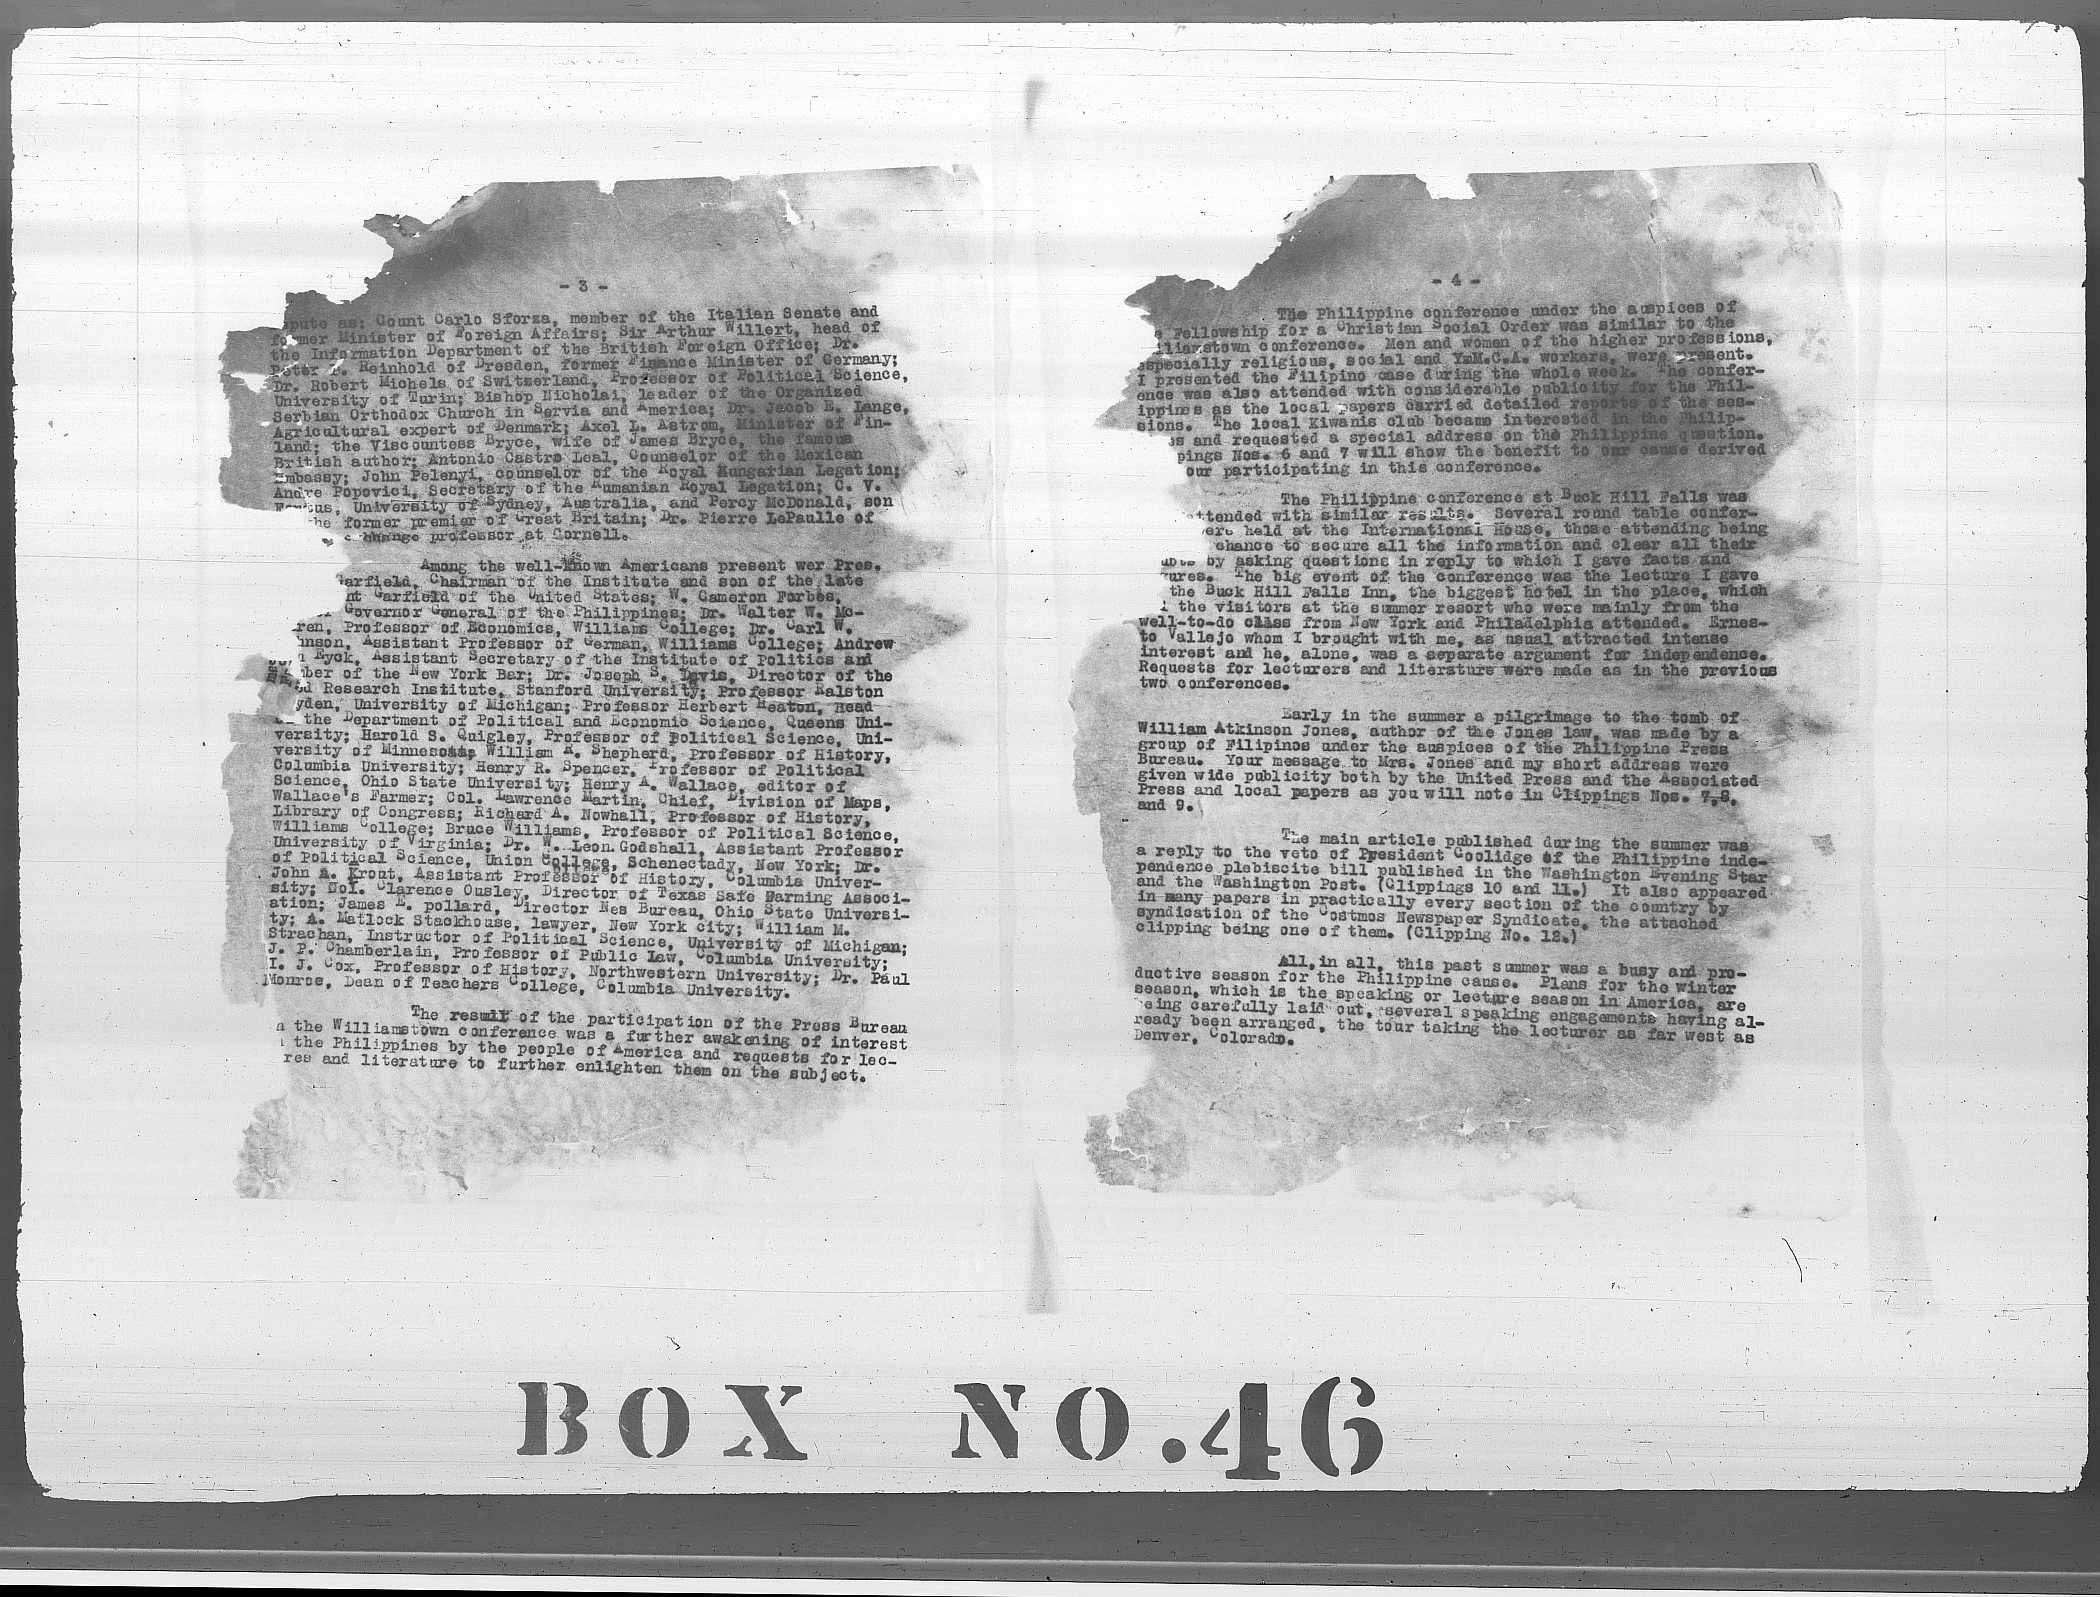 - 3 -
pute as: Count Carlo Sforza, member of the Italian Senate and
former Minister of Foreign Affairs; Sir Arthur Willert, head of
the Information Department of the British Foreign Office; Dr.
Peter Reinhold of Dresden, former Finance Minister of Germany;
Dr. Robert Michels of Switzerland, Professor of Political Science,
University of Turin; Bishop Nicholai, leader of the Organized
Serbian Orthodox Church in Servia and America; Dr. Jacob E. Lange,
Agricultural expert of Denmark; Axel L. Astrom, Minister of Fin-
land; the Viscountess Bryce, wife of James Bryce, the famous
British author; Antonio Castro Leal, Counselor of the Mexican
Embassy; John Pelenyi, counselor of the Royal Hungarian Legation;
Andre Popovici, Secretary of the Rumanian Royal Legation; C. V.
University of Sydney, Australia, and Percy McDonald, son
the former premier of Great Britain; Dr. Pierre LePaulle of
change professor at Cornell.
Among the well-known Americans present wer Pres.
arfield, Chairman of the Institute and son of the late
nt Garfield of the United States; W. Cameron Forbes,
Governor General of the Philippines; Dr. Walter W. Mc-
ren, Professor of Economics, Williams College; Dr. Carl W.
hnson, Assistant Professor of German, Williams College; Andrew
Eyck, Assistant Secretary of the Institute of Politics and
ber of the New York Bar; Dr. Joseph S. Davis, Director of the
d Research Institute, Stanford University; Professor Ralston
yden, University of Michigan; Professor Herbert Heaton, Head
the Department of Political and Economic Science, Queens Uni-
versity; Harold S. Quigley, Professor of Political Science, Uni-
versity of Minnesota; William R. Shepherd, Professor of History,
Columbia University; Henry R. Spencer, Professor of Political
Science, Ohio State University; Henry A. Wallace, editor of
Wallace's Farmer; Col. Lawrence Martin, Chief, Division of Maps,
Library of Congress; Richard A. Nowhall, Professor of History,
Williams College; Bruce Williams, Professor of Political Science,
University of Virginia; Dr. W. Leon Godshall, Assistant Professor
of Political Science, Union College, Schenectady, New York; Dr.
John A. Krout, Assistant Professor of History, Columbia Univer-
sity; Clarence Ousley, Director of Texas Safe Farming Associ-
ation; James E. pollard, Director Nes Bureau, Ohio State Universi-
ty; A. Matlock Stackhouse, lawyer, New York city; William M.
Strachan, Instructor of Political Science, University of Michigan;
J. P. Chamberlain, Professor of Public Law, Columbia University;
I. J. Cox, Professor of History, Northwestern University; Dr. Paul
Monroe, Dean of Teachers College, Columbia University.
The result of the participation of the Press Bureau
n the Williamstown conference was a further awakening of interest
the Philippines by the people of America and requests for lec-
res and literature to further enlighten them on the subject.
- 4 -
The Philippine conference under the auspices of
e Fellowship for a Christian Social Order was similar to the
lliamstown conference. Men and women of the higher professions,
especially religious, social and Y.M.C.A. workers, were present.
I presented the Filipino case during the whole week. The confer-
ence was also attended with considerable publicity for the Phil-
ippines as the local papers carried detailed reports of the ses-
sions. The local Kiwanis club became interested in the Philip-
s and requested a special address on the Philippine question.
pings Nos. 6 and 7 will show the benefit to our cause derived
our participating in this conference.
The Philippine conference at Buck Hill Falls was
attended with similar results. Several round table confer-
were held at the International House, those attending being
chance to secure all the information and clear all their
ubts by asking questions in reply to which I gave facts and
ures. The big event of the conference was the lecture I gave
the Buck Hill Falls Inn, the biggest hotel in the place, which
the visitors at the summer resort who were mainly from the
well-to-do class from New York and Philadelphia attended. Ernes-
to Vallejo whom I brought with me, as usual attracted intense
interest and he, alone, was a separate argument for independence.
Requests for lecturers and literature were made as in the previous
two conferences.
Early in the summer a pilgrimage to the tomb of
William Atkinson Jones, author of the Jones law, was made by a
group of Filipinos under the auspices of the Philippine Press
Bureau. Your message to Mrs. Jones and my short address were
given wide publicity both by the United Press and the Associated
Press and local papers as you will note in Clippings Nos. 7,8,
and 9.
The main article published during the summer was
a reply to the veto of President Coolidge of the Philippine inde-
pendence plebiscite bill published in the Washington Evening Star
and the Washington Post. (Clippings 10 and 11.) It also appeared
in many papers in practically every section of the country by
syndication of the Costmos Newspaper Syndicate, the attached
clipping being one of them. (Clipping No. 12.)
All, in all, this past summer was a busy and pro-
ductive season for the Philippine cause. Plans for the winter
season, which is the speaking or lecture season in America, are
being carefully laid out, several speaking engagements having al-
ready been arranged, the tour taking the lecturer as far west as
Denver, Colorado.
BOX NO. 46